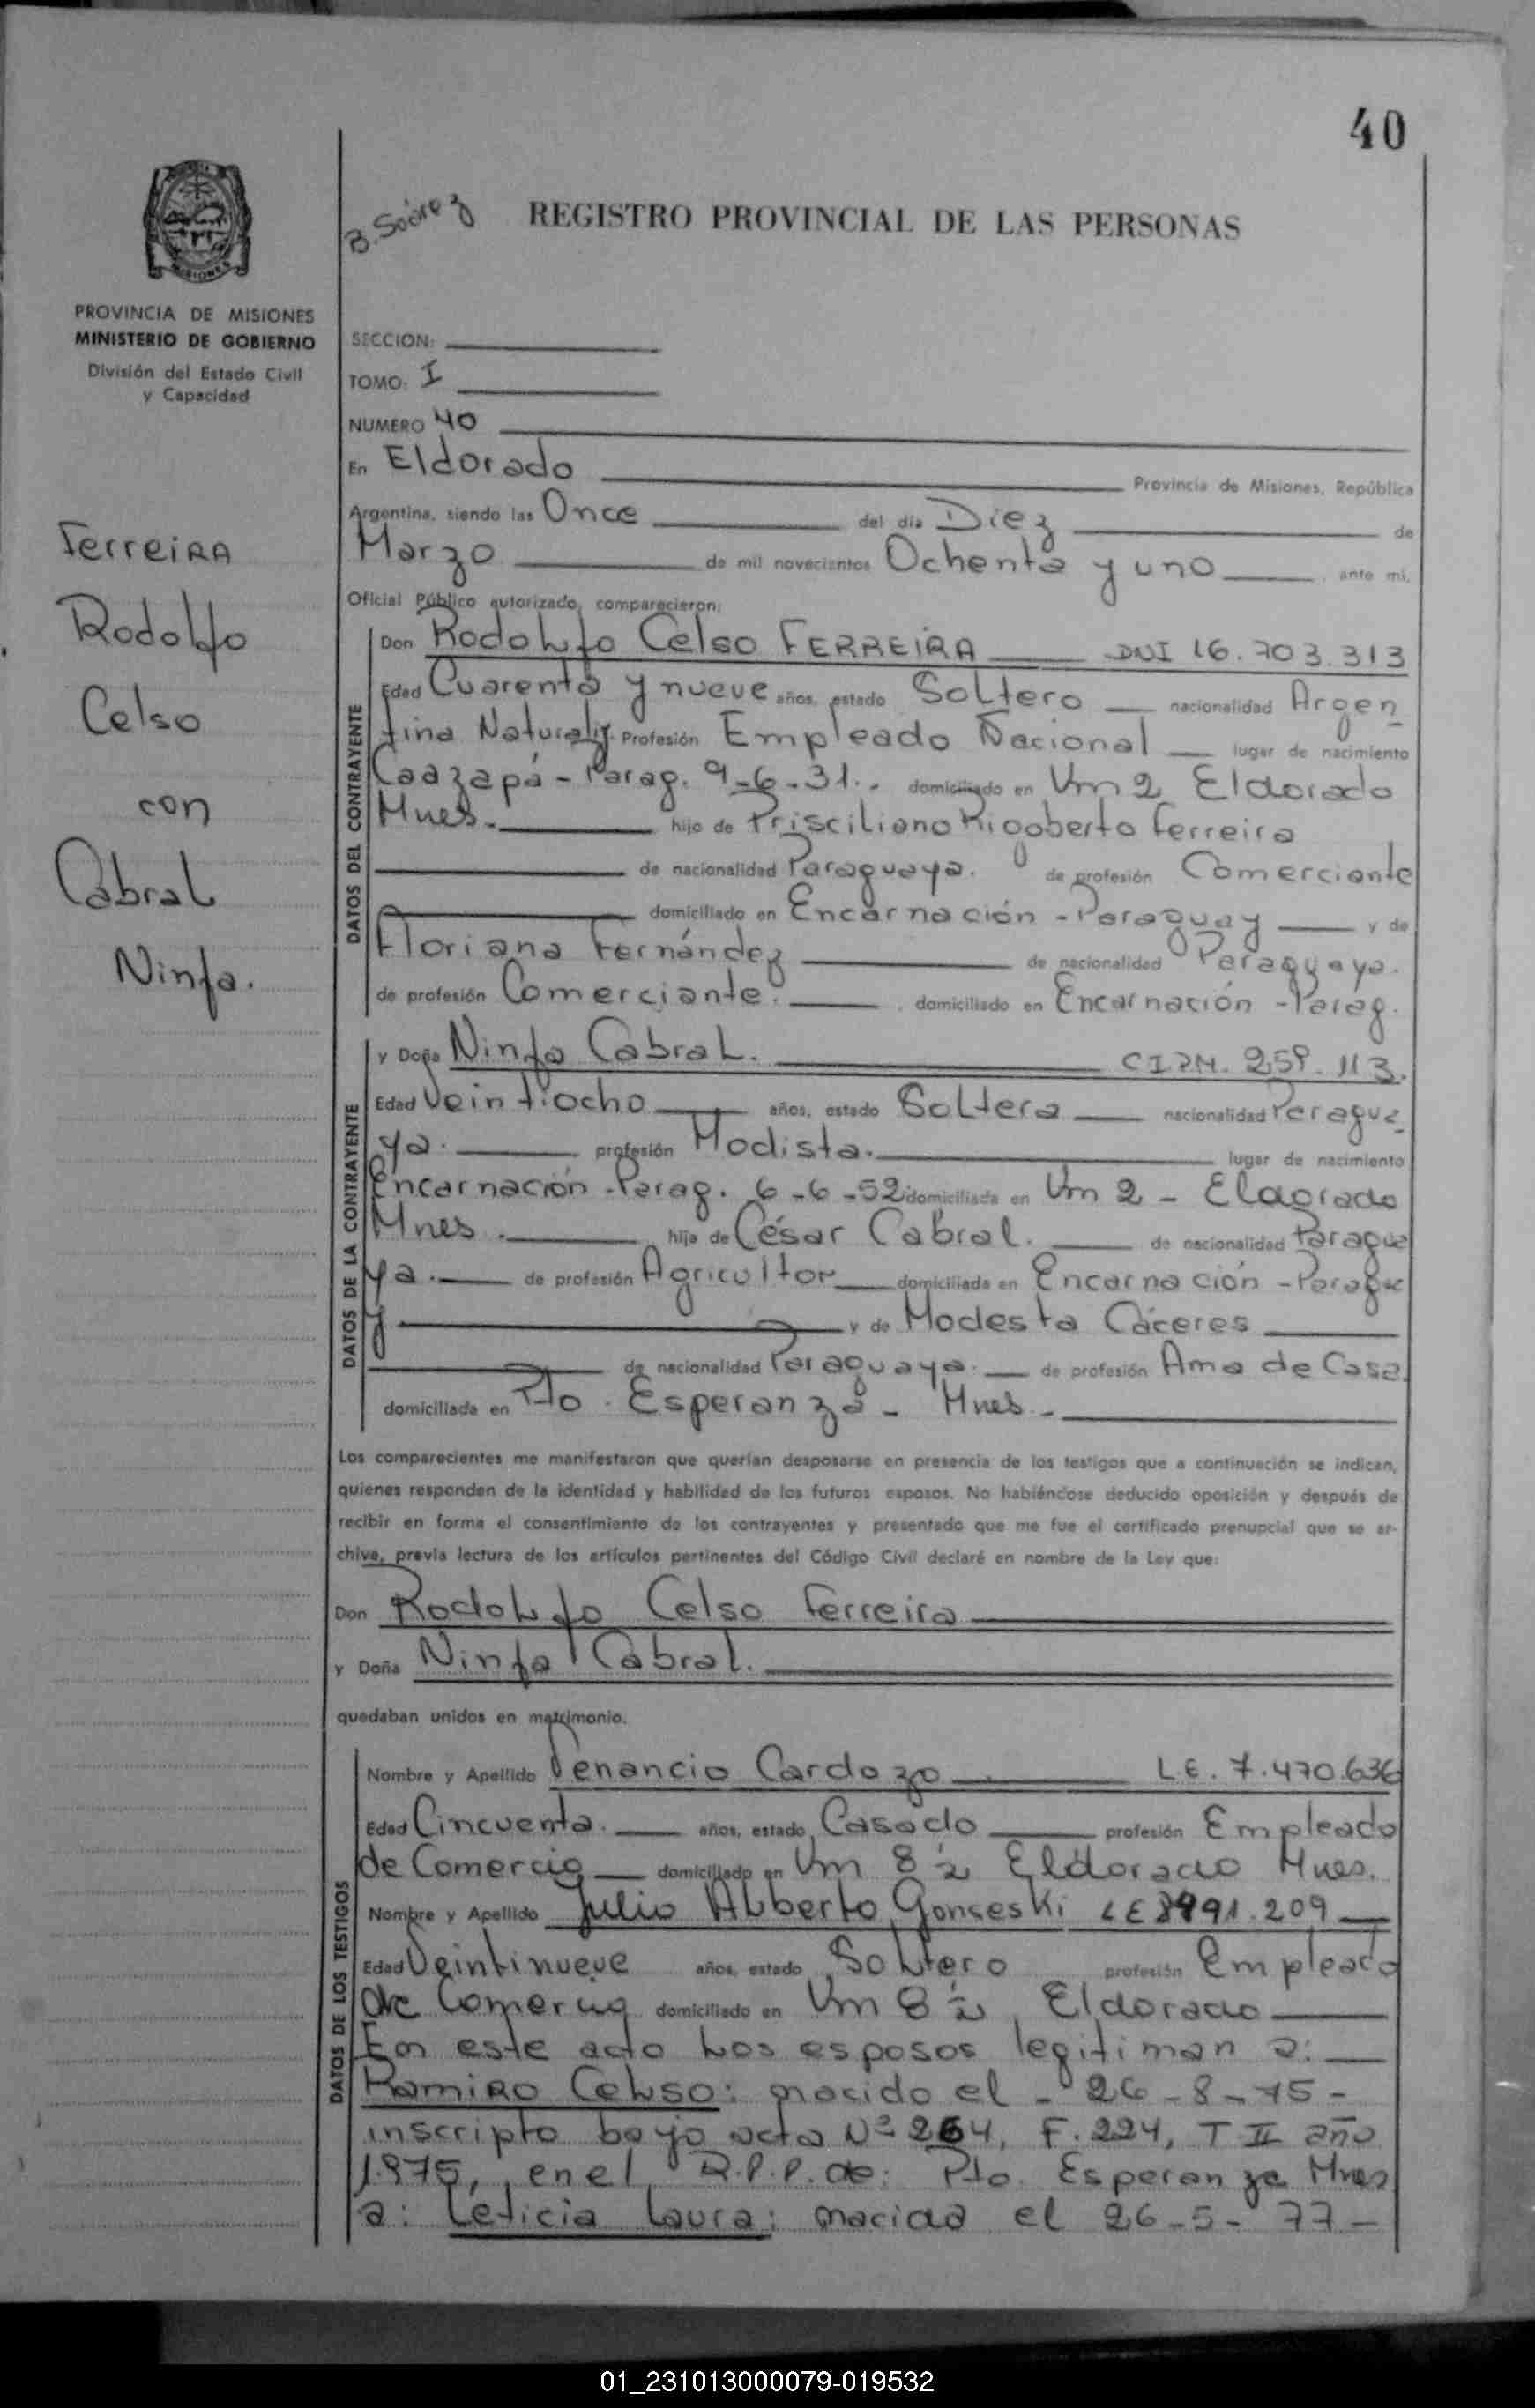 40
B. Soárez
REGISTRO PROVINCIAL DE LAS PERSONAS
MISIONES
PROVINCIA DE MISIONES
MINISTERIO DE GOBIERNO
División del Estado Civil
y Capacidad
Ferreira
Rodolfo
Celso
con
Cabral
Ninfa.
SECCION:
TOMO: I
NUMERO 40
En Eldorado Provincia de Misiones, República
Argentina, siendo las Once del día Diez de
Marzo de mil novecientos Ochenta y uno ante mi,
Oficial Público autorizado, comparecieron:
DATOS DEL CONTRAYENTE
Don Rodolfo Celso FERREIRA DNI 16.703.313
Edad Cuarenta y nueve años, estado Soltero nacionalidad Argen
tina Naturaliz. Profesión Empleado Nacional lugar de nacimiento
Caazapá - Parag. 9-6-31. domiciliado en Km 2 Eldorado
Mnes. hijo de Prisciliano Rigoberto Ferreira
de nacionalidad Paraguaya. de profesión Comerciante
domiciliado en Encarnación - Paraguay y de
Floriana Fernández de nacionalidad Paraguaya.
de profesión Comerciante. domiciliado en Encarnación - Parag.
DATOS DE LA CONTRAYENTE
y Doña Ninfa Cabral. CIPM. 259.113.
Edad Veintiocho años, estado Soltera nacionalidad Paragua
ya. profesión Modista. lugar de nacimiento
Encarnación - Parag. 6-6-52 domiciliada en Km 2 - Eldorado
Mnes. hija de César Cabral. de nacionalidad Paragua
ya. de profesión Agricultor domiciliado en Encarnación - Paragua
y y de Modesta Cáceres
de nacionalidad Paraguaya. de profesión Ama de Casa.
domiciliada en Pto. Esperanza - Mnes.
Los comparecientes me manifestaron que querían desposarse en presencia de los testigos que a continuación se indican,
quienes responden de la identidad y habilidad de los futuros esposos. No habiéndose deducido oposición y después de
recibir en forma el consentimiento de los contrayentes y presentado que me fue el certificado prenupcial que se ar-
chiva, previa lectura de los artículos pertinentes del Código Civil declaré en nombre de la Ley que:
Don Rodolfo Celso Ferreira
y Doña Ninfa Cabral.
quedaban unidos en matrimonio.
DATOS DE LOS TESTIGOS
Nombre y Apellido Venancio Cardozo L.E. 7.470.636
Edad Cincuenta. años, estado Casado profesión Empleado
de Comercio domiciliado en Km 8 ½ Eldorado Mnes.
Nombre y Apellido Julio Alberto Gonseski LE 991.209
Edad Veintinueve años, estado Soltero profesión Empleado
de Comercio domiciliado en Km 8 ½ Eldorado
En este acto los esposos legitiman a:
Ramiro Celso: nacido el - 26-8-75-
inscripto bajo acta Nº 264, F. 224, T II año
1.975, en el R.P.P. de: Pto. Esperanza Mnes
a: Leticia Laura: nacida el 26-5-77-
01_231013000079-019532